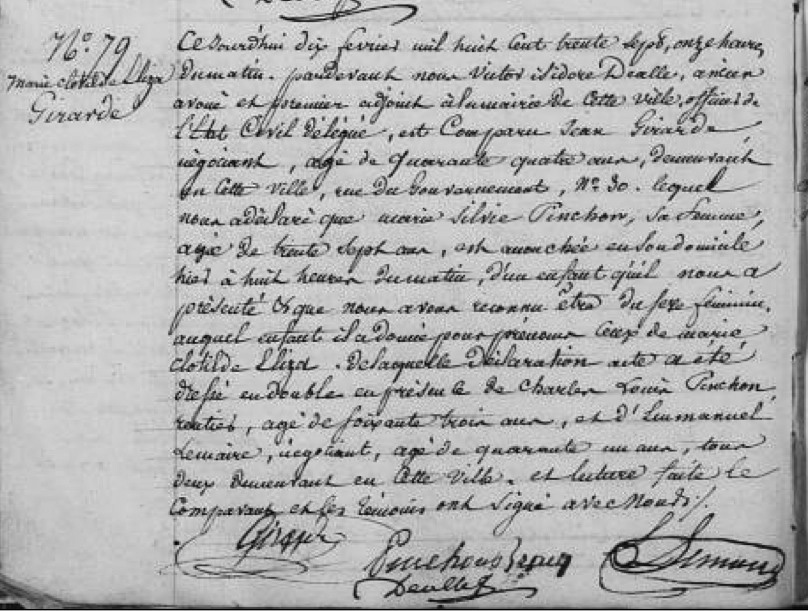 N.° 79
Marie Clotilde Lliza
Girarde
Cejourd'hui dix fevrier mil huit cent trente sept, onze heures
du matin. pardevant nous Victor isidore Dealle, ancien
avoué et premier adjoint à la mairie de cette ville, officier de
l'Etat Civil délégué, est Comparu Jean Girarde
négociant, agé de quarante quatre ans, demeurant
en cette Ville, rue du Gouvernement, N.° 30. lequel
nous a déclaré que marie Silvie Pinchon, sa femme,
agée de trente sept ans, est accouchée en son domicile
hier à huit heures du matin, d'un enfant qu'il nous a
présenté & que nous avons reconnu être du sexe féminin,
auquel enfant il a donné pour prénoms ceux de marie
Clotilde Lliza. de laquelle déclaration acte a été
dressé en double en présence de Charles Louis Pinchon
rentier, agé de soixante trois ans, et d'Emmanuel
Lemaire, négociant, agé de quarante un ans, tous
deux demeurant en cette Ville. et lecture faite le
Comparant et les témoins ont signé avec Nous
Girarde
Pinchon
Dealle